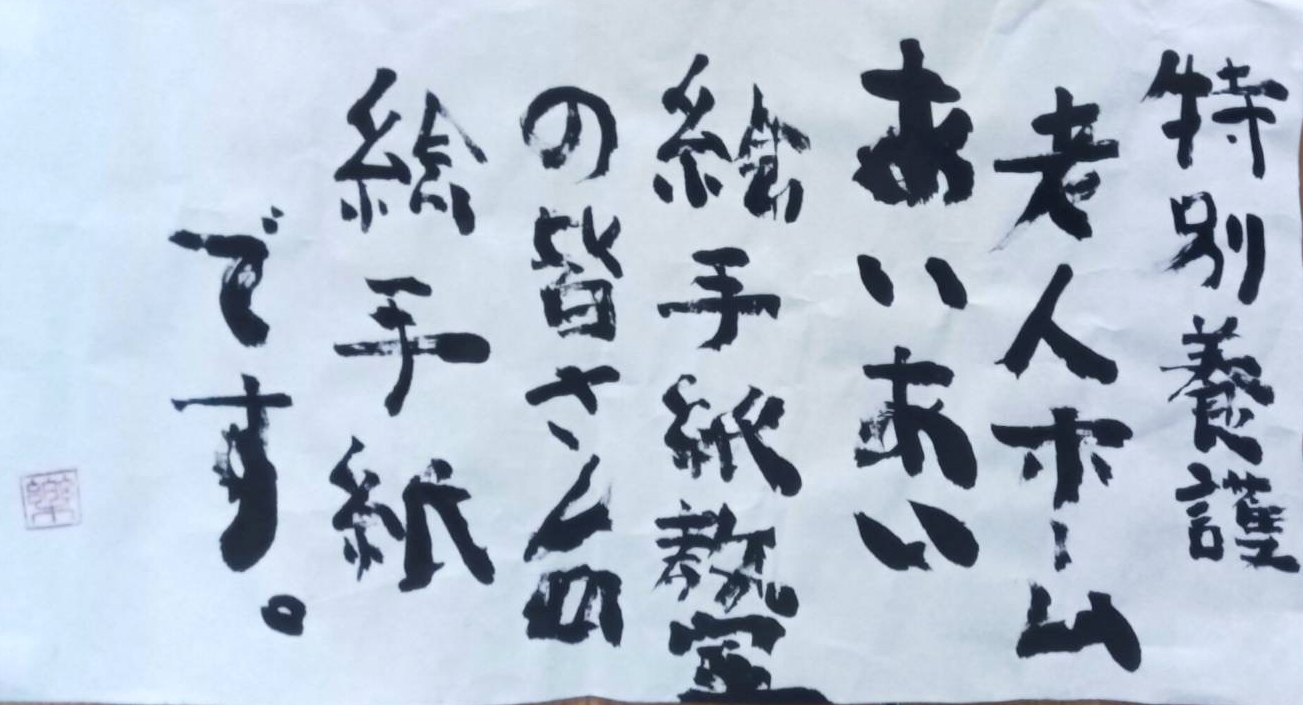 特別養護
老人ホーム
あいあい
絵手紙教室
の皆さんの
絵手紙
です。